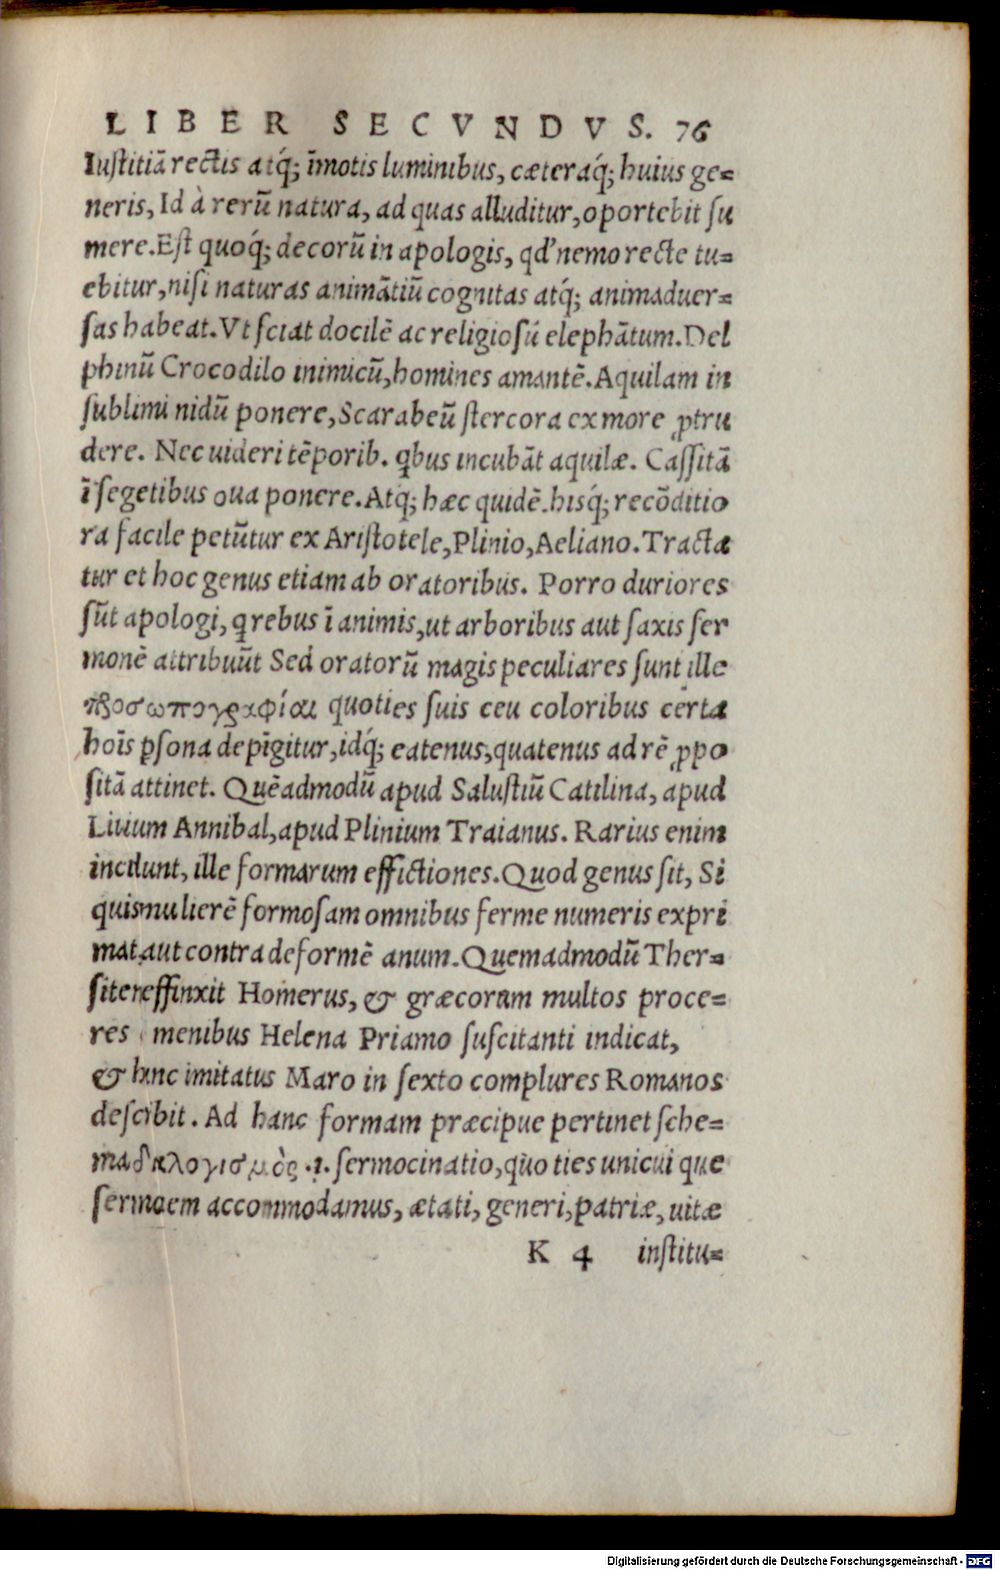 LIBER SECVNDVS. 76
Iustitiā rectis atq́; īmotis luminibus, cæteraq́; huius ge=
neris, Id à rerū natura, ad quas alluditur, oportebit su
mere. Est quoq́; decorū in apologis, qd' nemo recte tu=
ebitur, nisi naturas animātiū cognitas atq́; animaduer=
sas habeat. Vt sciat docilē ac religiosū elephātum. Del
phinū Crocodilo inimicū, homines amantē. Aquilam in
sublimi nidū ponere, Scarabeū stercora ex more ꝓtru
dere. Nec uideri tēporib. qbus incubāt aquilæ. Cassitā
ī segetibus oua ponere. Atq; hæc quidē. hisq́; recōditio
ra facile petūtur ex Aristotele, Plinio, Aeliano. Tracta
tur et hoc genus etiam ab oratoribus. Porro duriores
sūt apologi, q rebus ī animis, ut arboribus aut saxis ser
monē attribuūt Sed oratorū magis peculiares sunt ille
προσωπογραφίαι quoties suis ceu coloribus certa
hoīs ꝑsona depīgitur, idq́; eatenus, quatenus ad rē ꝓpo
sitā attinet. Quēadmodū apud Salustiū Catilina, apud
Liuium Annibal, apud Plinium Traianus. Rarius enim
incidunt, ille formarum effictiones. Quod genus sit, Si
quis mulierē formosam omnibus ferme numeris expri
mat aut contra deformē anum. Quemadmodū Ther=
siten effinxit Homerus, & græcorum multos proce=
res menibus Helena Priamo suscitanti indicat,
& hinc imitatus Maro in sexto complures Romanos
descibit. Ad hanc formam præcipue pertinet sche=
ma διαλογισμὸς .i. sermocinatio, quo ties unicui que
sermoem accommodamus, ætati, generi, patriæ, uitæ
K 4 institu=
Digitalisierung gefördert durch die Deutsche Forschungsgemeinschaft - DFG